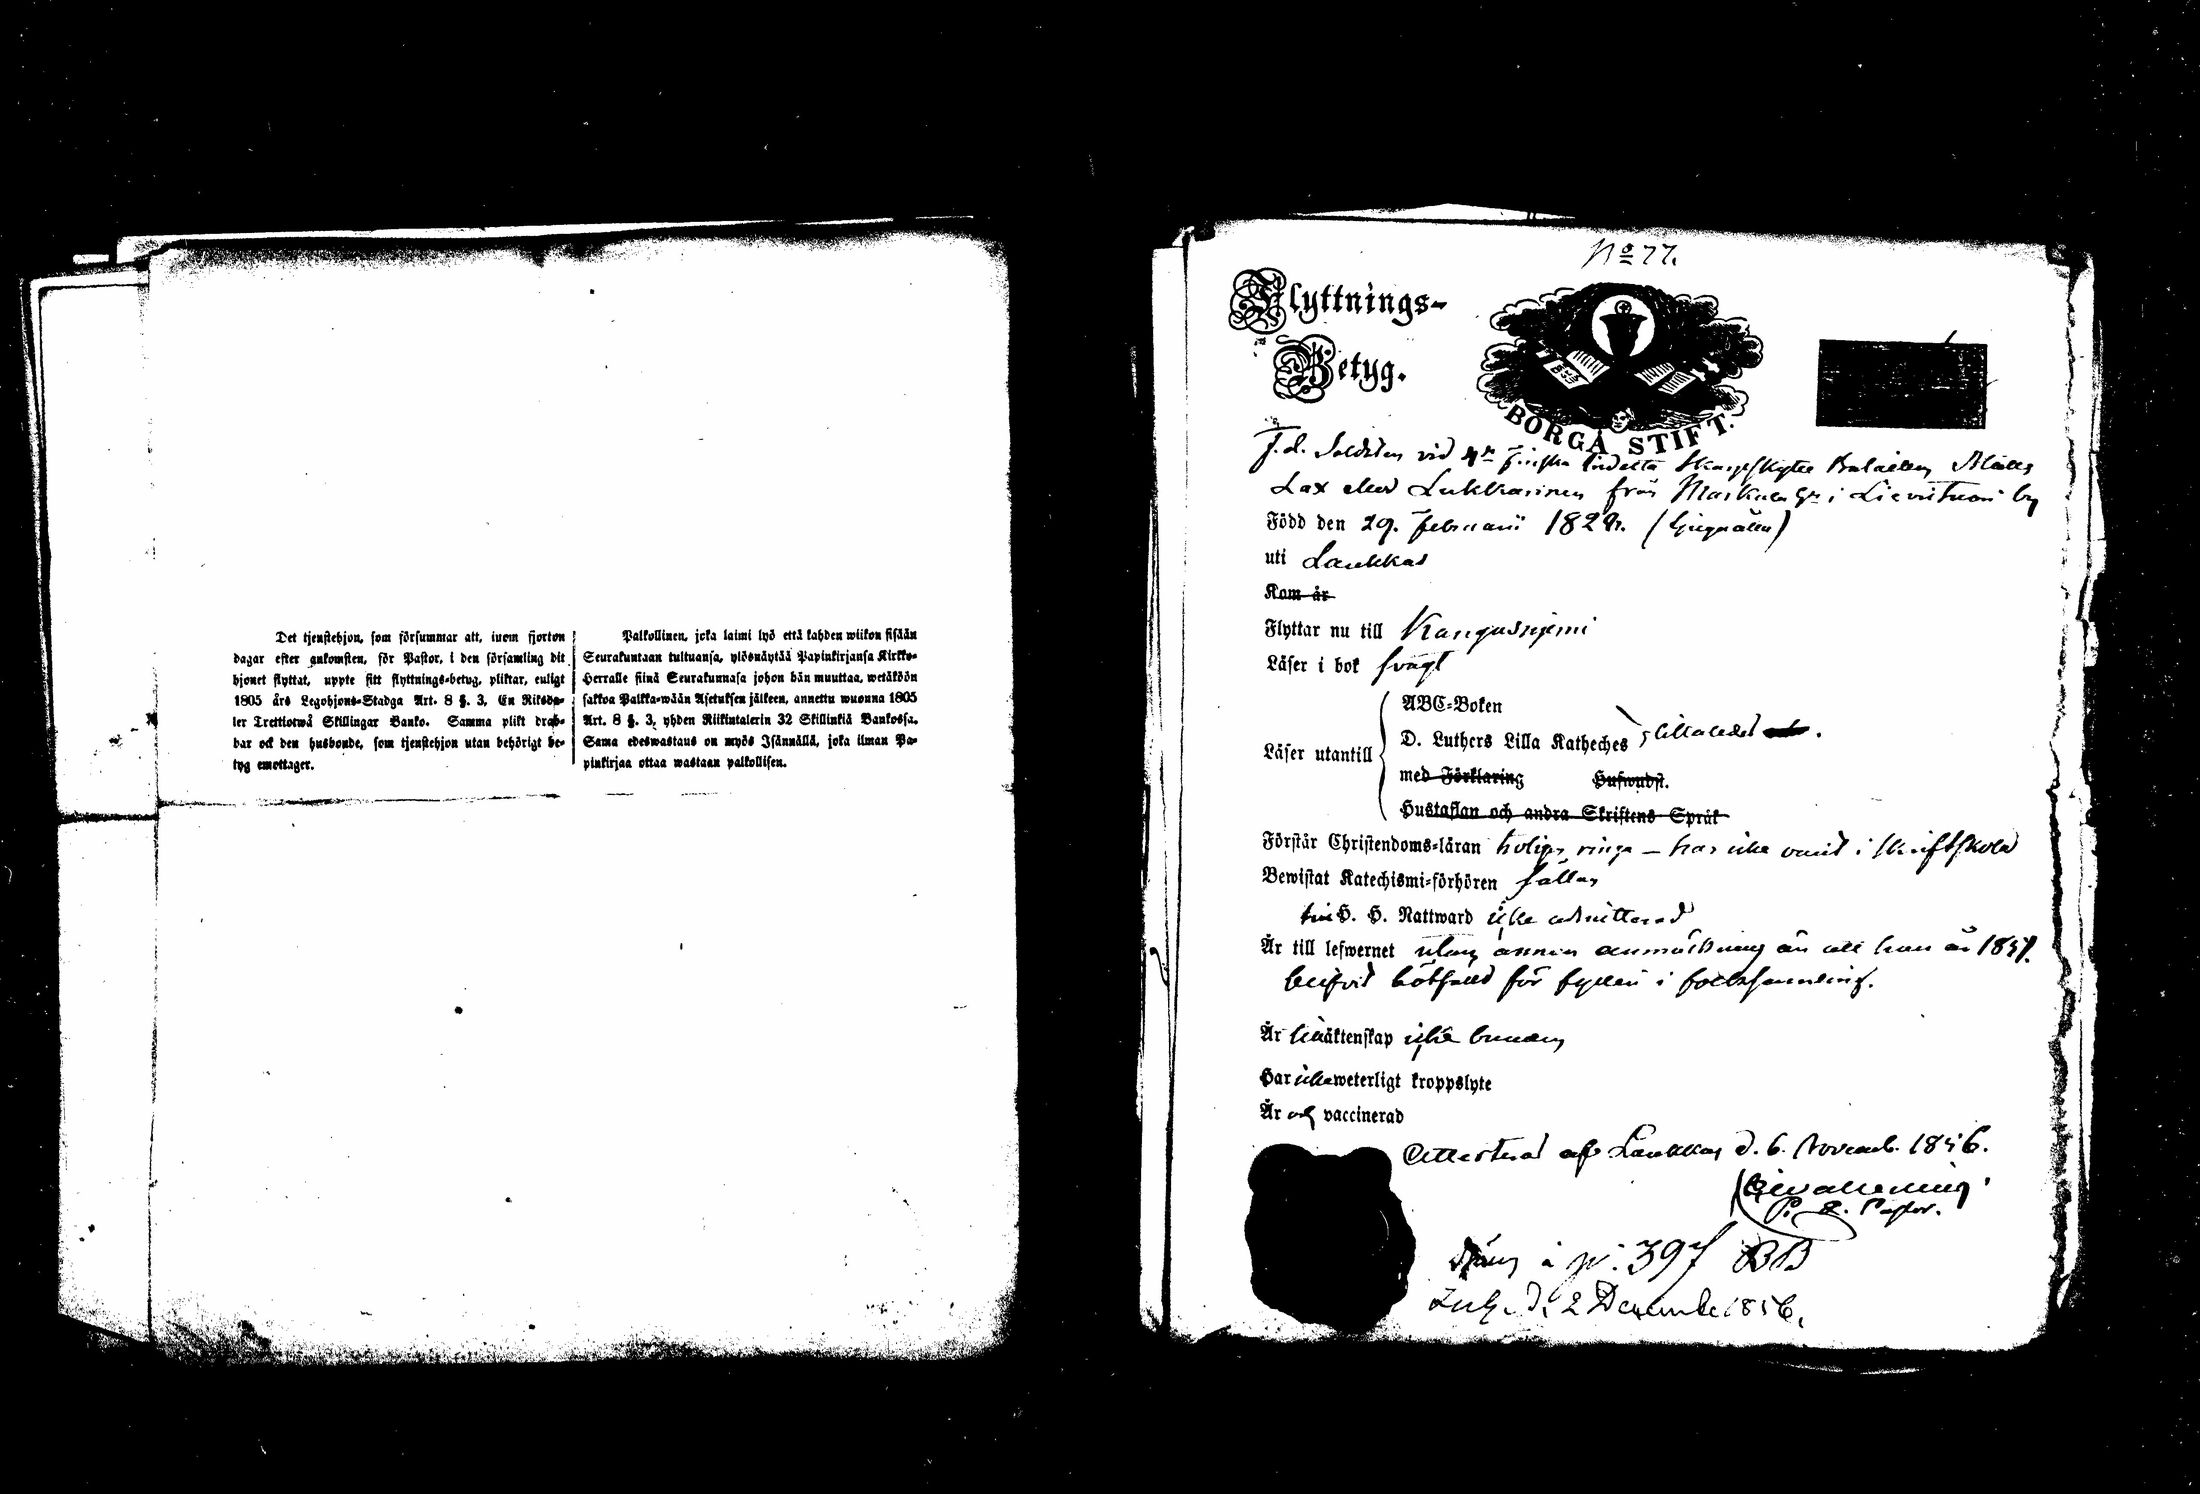 Det tjenstehjon, som försummar att, inom fjorton
dagar efter ankomsten, för Pastor, i den församling dit
hjonet flyttat, uppte sitt flyttnings-betyg, pliktar, enligt
1805 års Legohjons-Stadga Art. 8 §. 3, En Riksda-
ler Trettiotwå Skillingar Banko. Samma plikt drab-
bar ock den husbonde, som tjenstehjon utan behörigt be-
tyg emottager.
Palkollinen, joka laimi lyö että kahden wiikon sisään
Seurakuntaan tultuansa, ylösnäytää Papinkirjansa Kirkko-
Herralle siinä Seurakunnasa johon hän muuttaa, wetäköön
sakkoa Palkka-wään Asetuksen jälkeen, annettu wuonna 1805
Art. 8 §. 3, yhden Riikintalerin 32 Skillinkiä Bankossa.
Sama edeswastaus on myös Isännällä, joka ilman Pa-
pinkirjaa ottaa wastaan palkollisen.
No 77.
Flyttnings-
Betyg.
BORGÅ STIFT.
F. d. Soldaten vid 4de Finska Skarpskytte Bataillon
Lax eller Lukkarinen från i Lievestuori by
Född den 29. Februarii 1824.
uti Laukkas
Kom år
Flyttar nu till Kangasniemi
Läser i bok svagt
Läser utantill
ABC-Boken
D. Luthers Lilla Katheches
med Förklaring Hufwudst.
Hustaflan och andra Skriftens Språk
Förstår Christendoms-läran ringa – har icke varit i skriftskola
Bewistat Katechismi-förhören sällan
H. H. Nattward icke admitterad
Är till lefwernet utan annan anmärkning än att han år
blifvit bötfälld för fylleri i
Är till äktenskap icke bunden
Har icke weterligt kroppslyte
Är och vaccinerad
Attesterad af Laukkas d. 6. Novemb. 1856.
Pastor.
p: 397 BB
d. 2 December 1856.